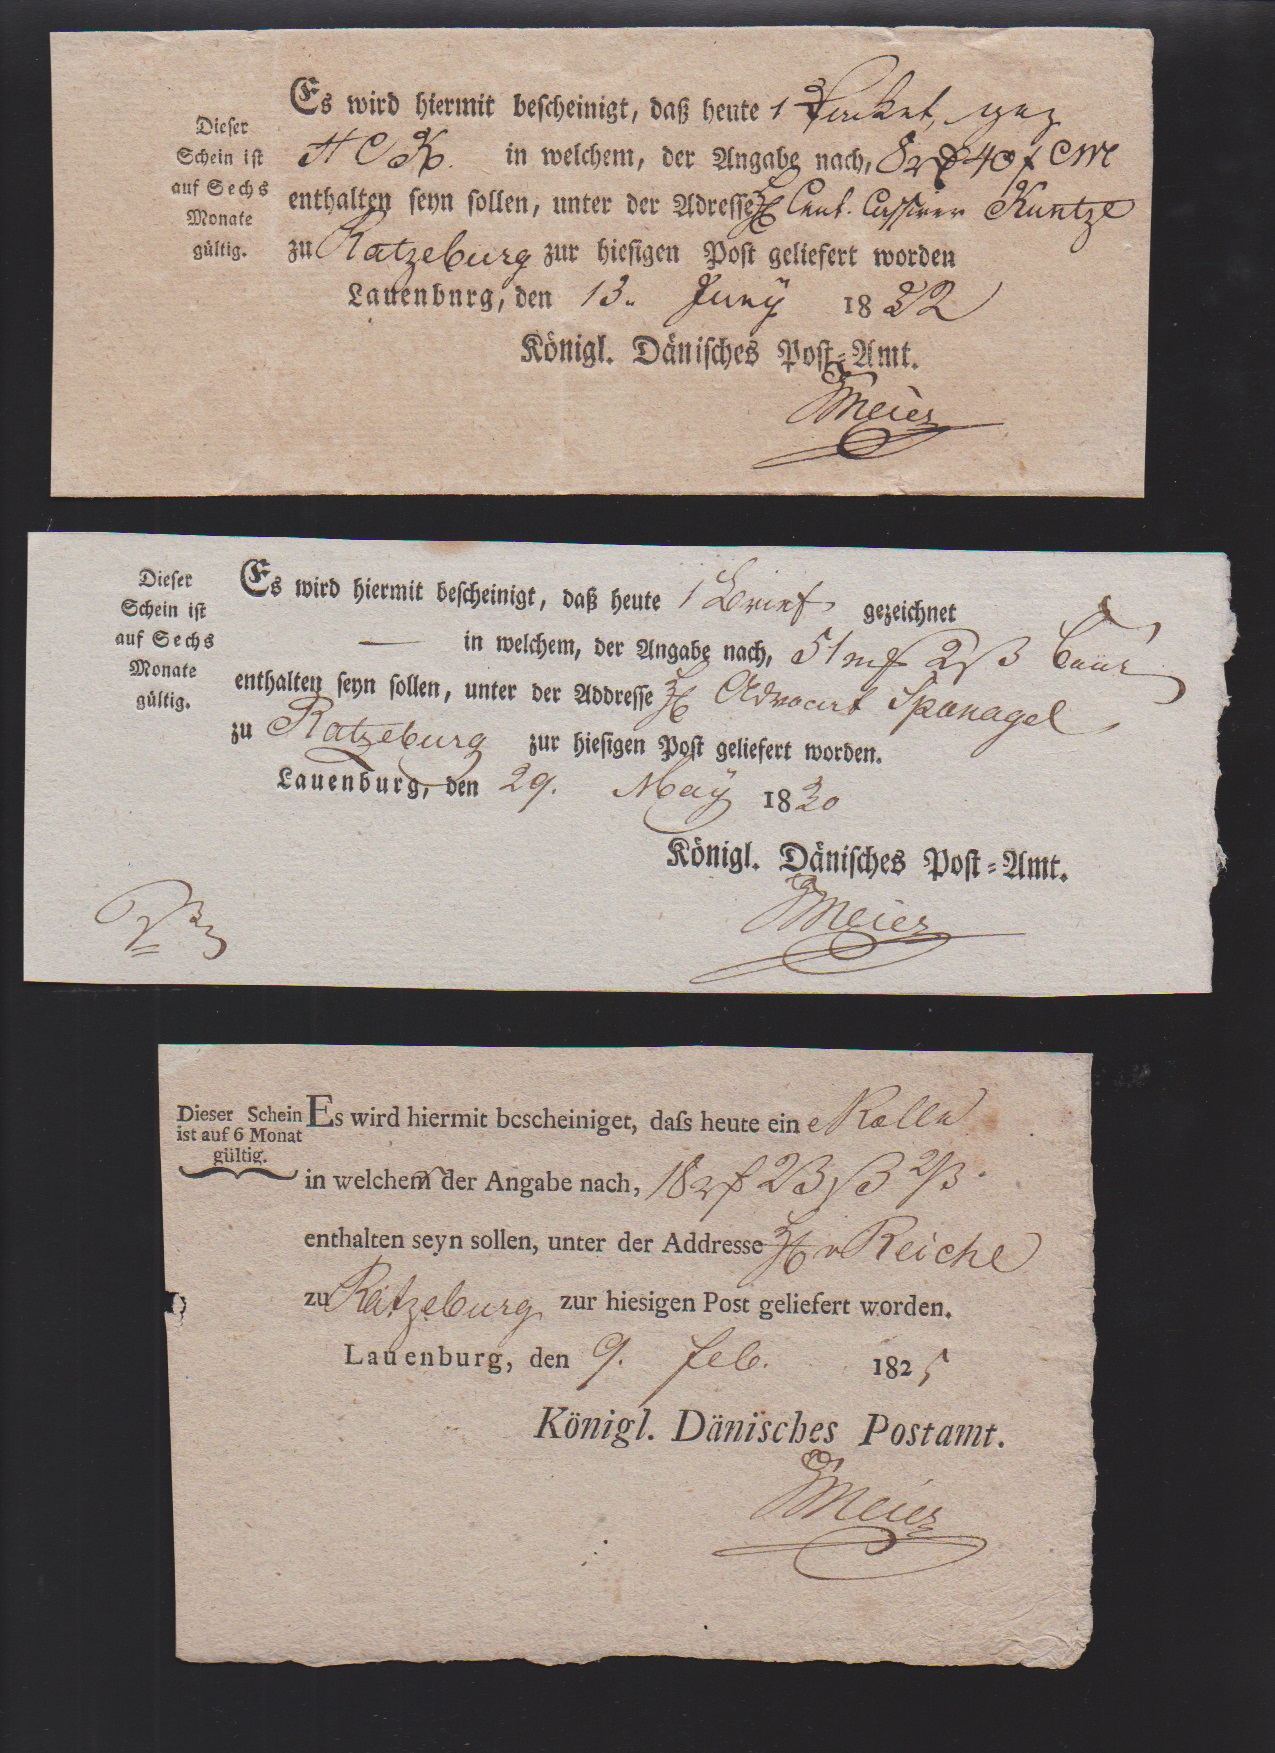 Dieser
Schein ist
auf Sechs
Monate
gültig.
Es wird hiermit bescheinigt, daß heute 1 Packet, gez
H C K. in welchem, der Angabe nach,
enthalten seyn sollen, unter der Adresse Cassirer Kuntze
zu Ratzeburg zur hiesigen Post geliefert worden
Lauenburg, den 13. Juny 1832
Königl. Dänisches Post-Amt.
Meier
Dieser
Schein ist
auf Sechs
Monate
gültig.
Es wird hiermit bescheinigt, daß heute 1 Brief gezeichnet
— in welchem, der Angabe nach, 51 2
enthalten seyn sollen, unter der Addresse Advocat Spanagel
zu Ratzeburg zur hiesigen Post geliefert worden.
Lauenburg, den 29. May 1830
Königl. Dänisches Post-Amt.
Meier
Dieser Schein
ist auf 6 Monat
gültig.
Es wird hiermit bescheiniget, dass heute eine Rolle
in welcher der Angabe nach, 18 23
enthalten seyn sollen, unter der Addresse v Reiche
zu Ratzeburg zur hiesigen Post geliefert worden.
Lauenburg, den 9. Feb. 1825
Königl. Dänisches Postamt.
Meier